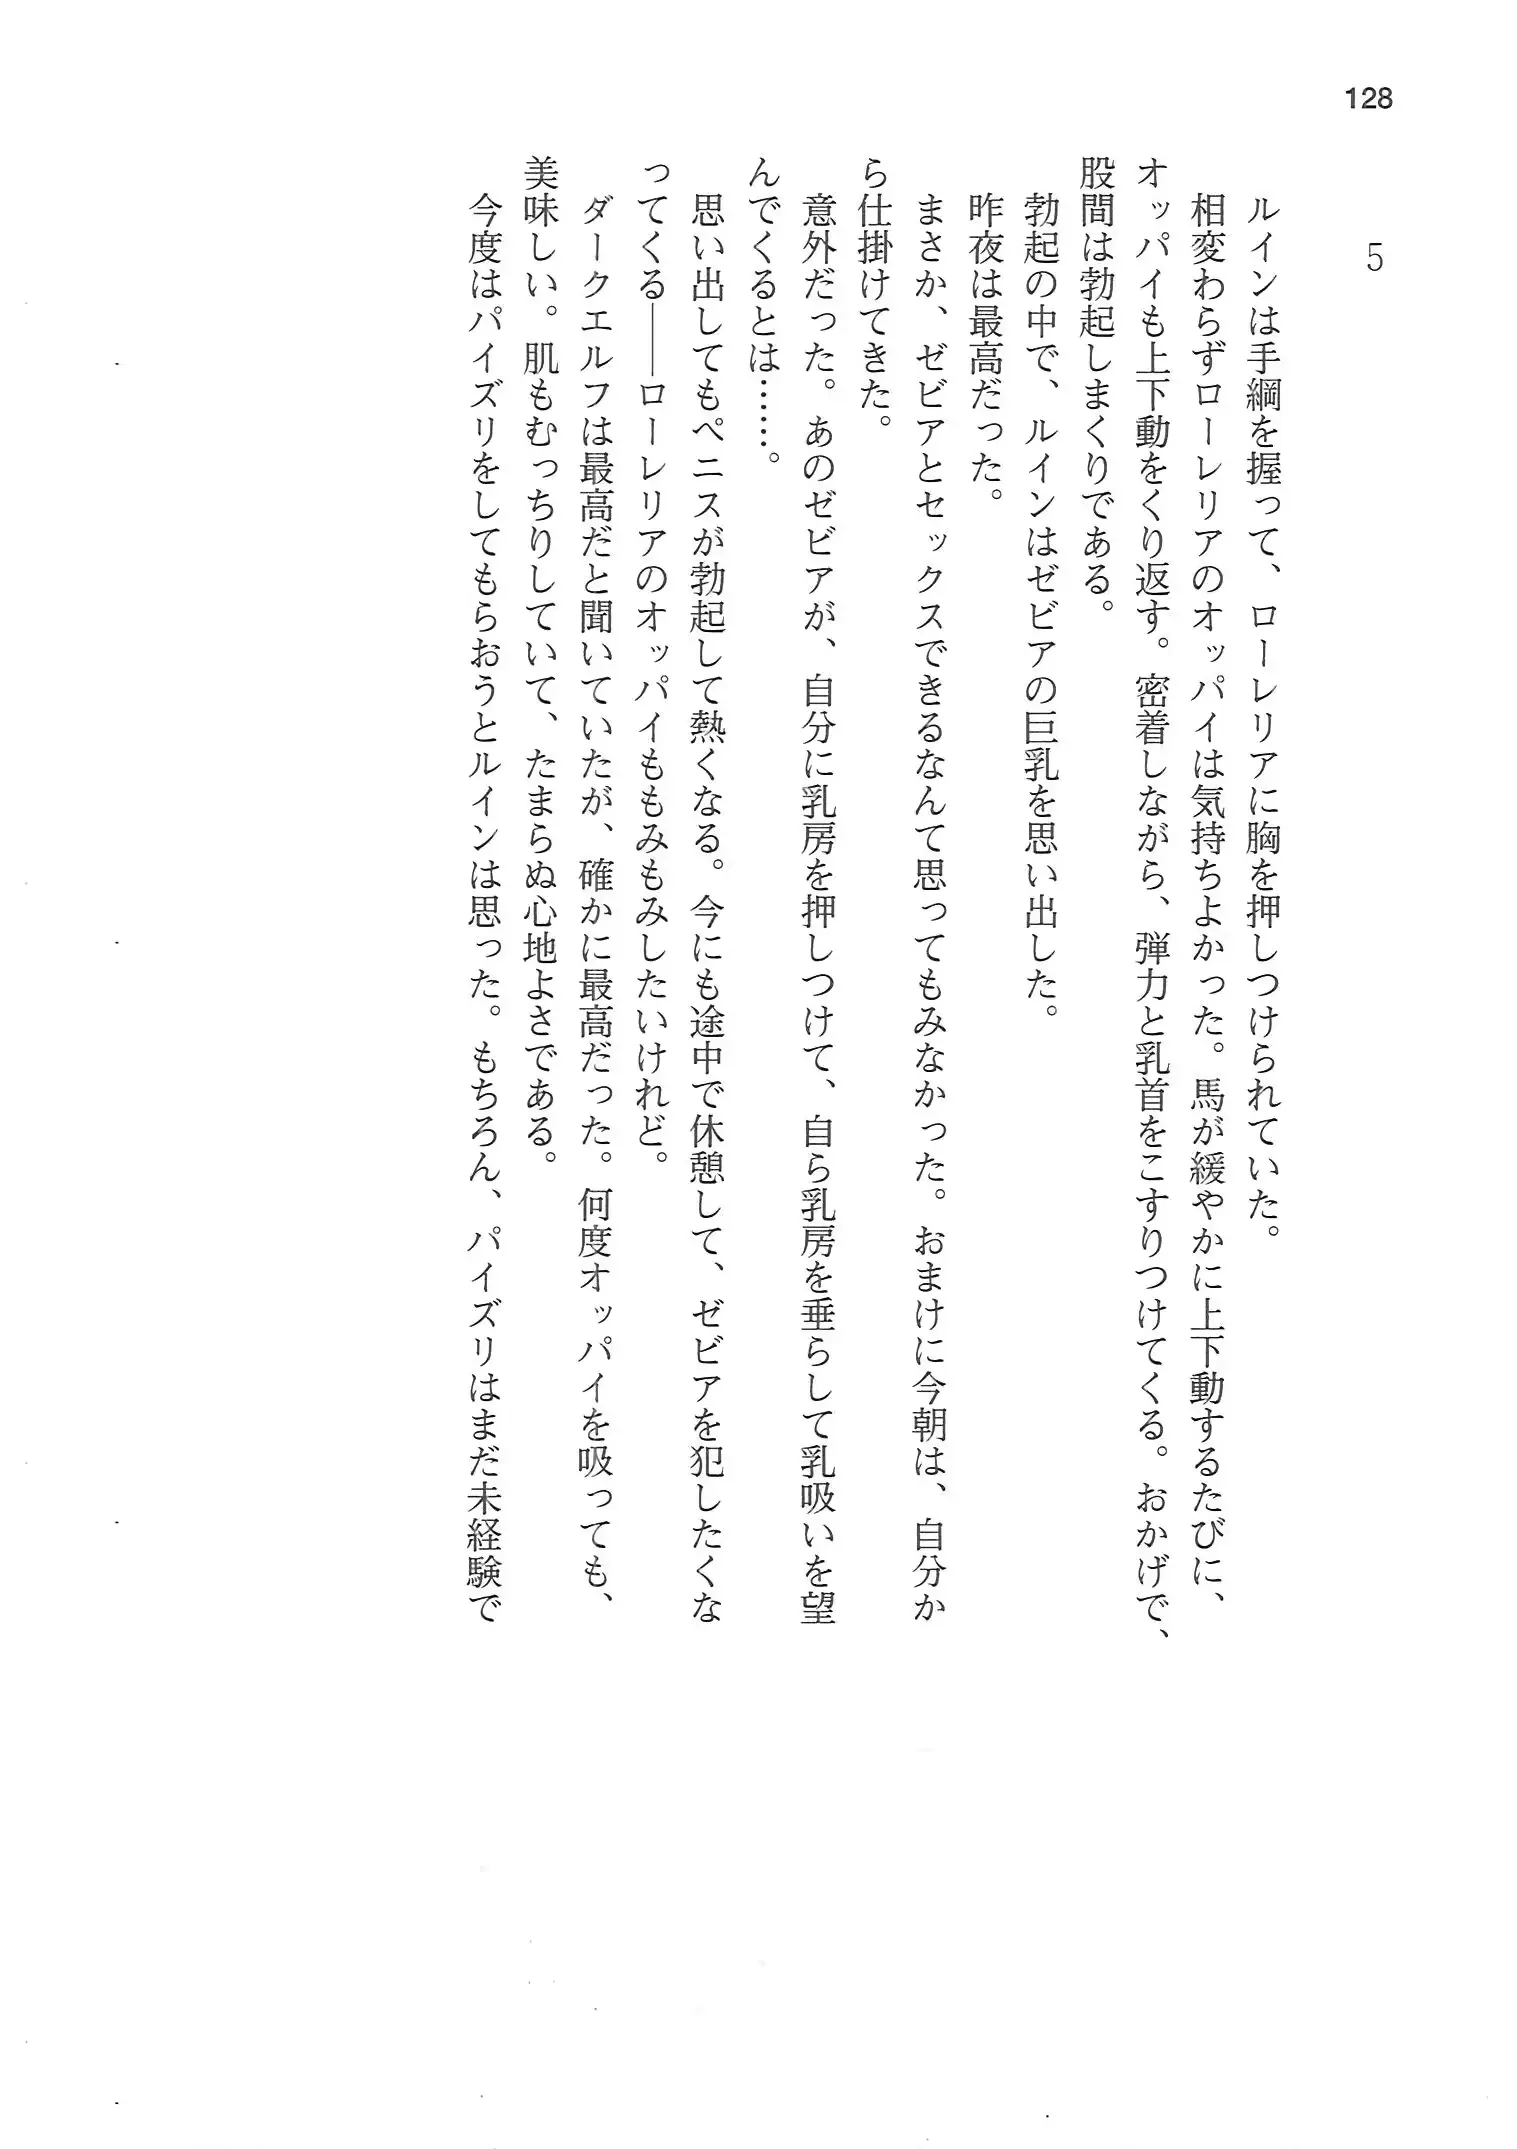 128
5
ルインは手綱を握って、ローレリアに胸を押しつけられていた。
相変わらずローレリアのオッパイは気持ちよかった。馬が緩やかに上下動するたびに、
オッパイも上下動をくり返す。密着しながら、弾力と乳首をこすりつけてくる。おかげで、
股間は勃起しまくりである。
勃起の中で、ルインはゼビアの巨乳を思い出した。
昨夜は最高だった。
まさか、ゼビアとセックスできるなんて思ってもみなかった。おまけに今朝は、自分か
ら仕掛けてきた。
意外だった。あのゼビアが、自分に乳房を押しつけて、自ら乳房を垂らして乳吸いを望
んでくるとは……。
思い出してもペニスが勃起して熱くなる。今にも途中で休憩して、ゼビアを犯したくな
ってくる――ローレリアのオッパイももみもみしたいけれど。
ダークエルフは最高だと聞いていたが、確かに最高だった。何度オッパイを吸っても、
美味しい。肌もむっちりしていて、たまらぬ心地よさである。
今度はパイズリをしてもらおうとルインは思った。もちろん、パイズリはまだ未経験で